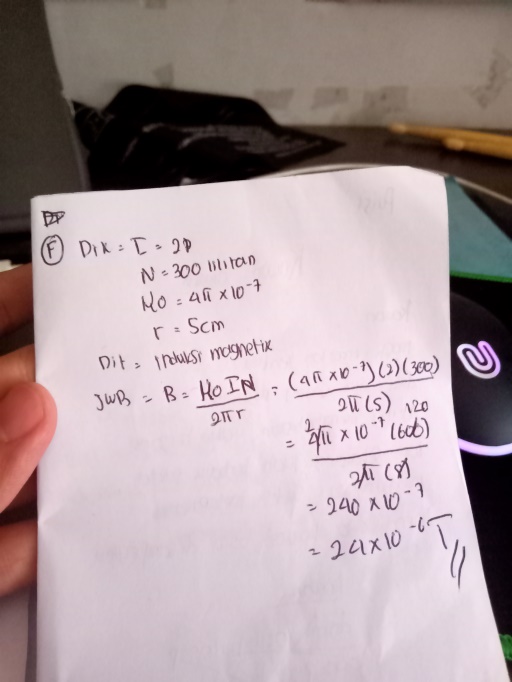 F Dik = I = 2A
N = 300 lilitan
μo = 4π × 10⁻⁷
r = 5cm
Dit = Induksi magnetik
JWB = B = μo I N / 2πr = (4π × 10⁻⁷)(2)(300) / 2π(5)
= 4π × 10⁻⁷ (600) / 2π (5) 2 120
= 240 × 10⁻⁷
= 24 × 10⁻⁶ T //